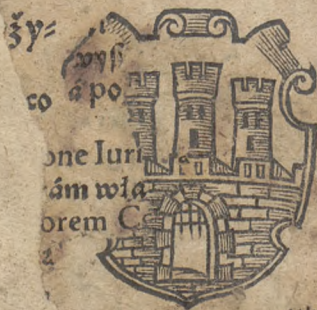 ży-
wyſ
co á po
one Iuri
ám wła
orem C